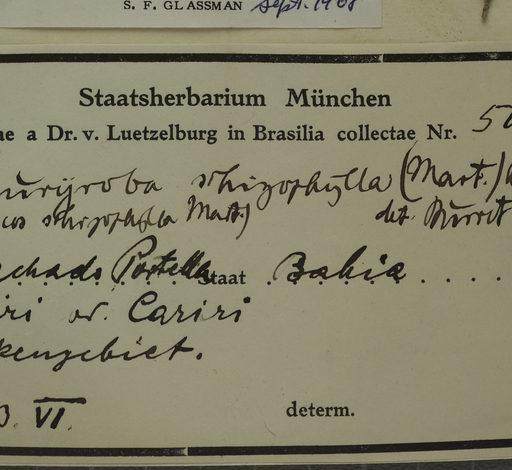 S. F. GLASSMAN Sept. 1968
Staatsherbarium München
ae a Dr. v. Luetzelburg in Brasilia collectae Nr. 50
schizophylla (Mart.)
cos schizophylla Mart.) det. Burret
chado Portella Staat Bahia . . . .
iri or. Cariri
kengebiet.
3. VI. determ.